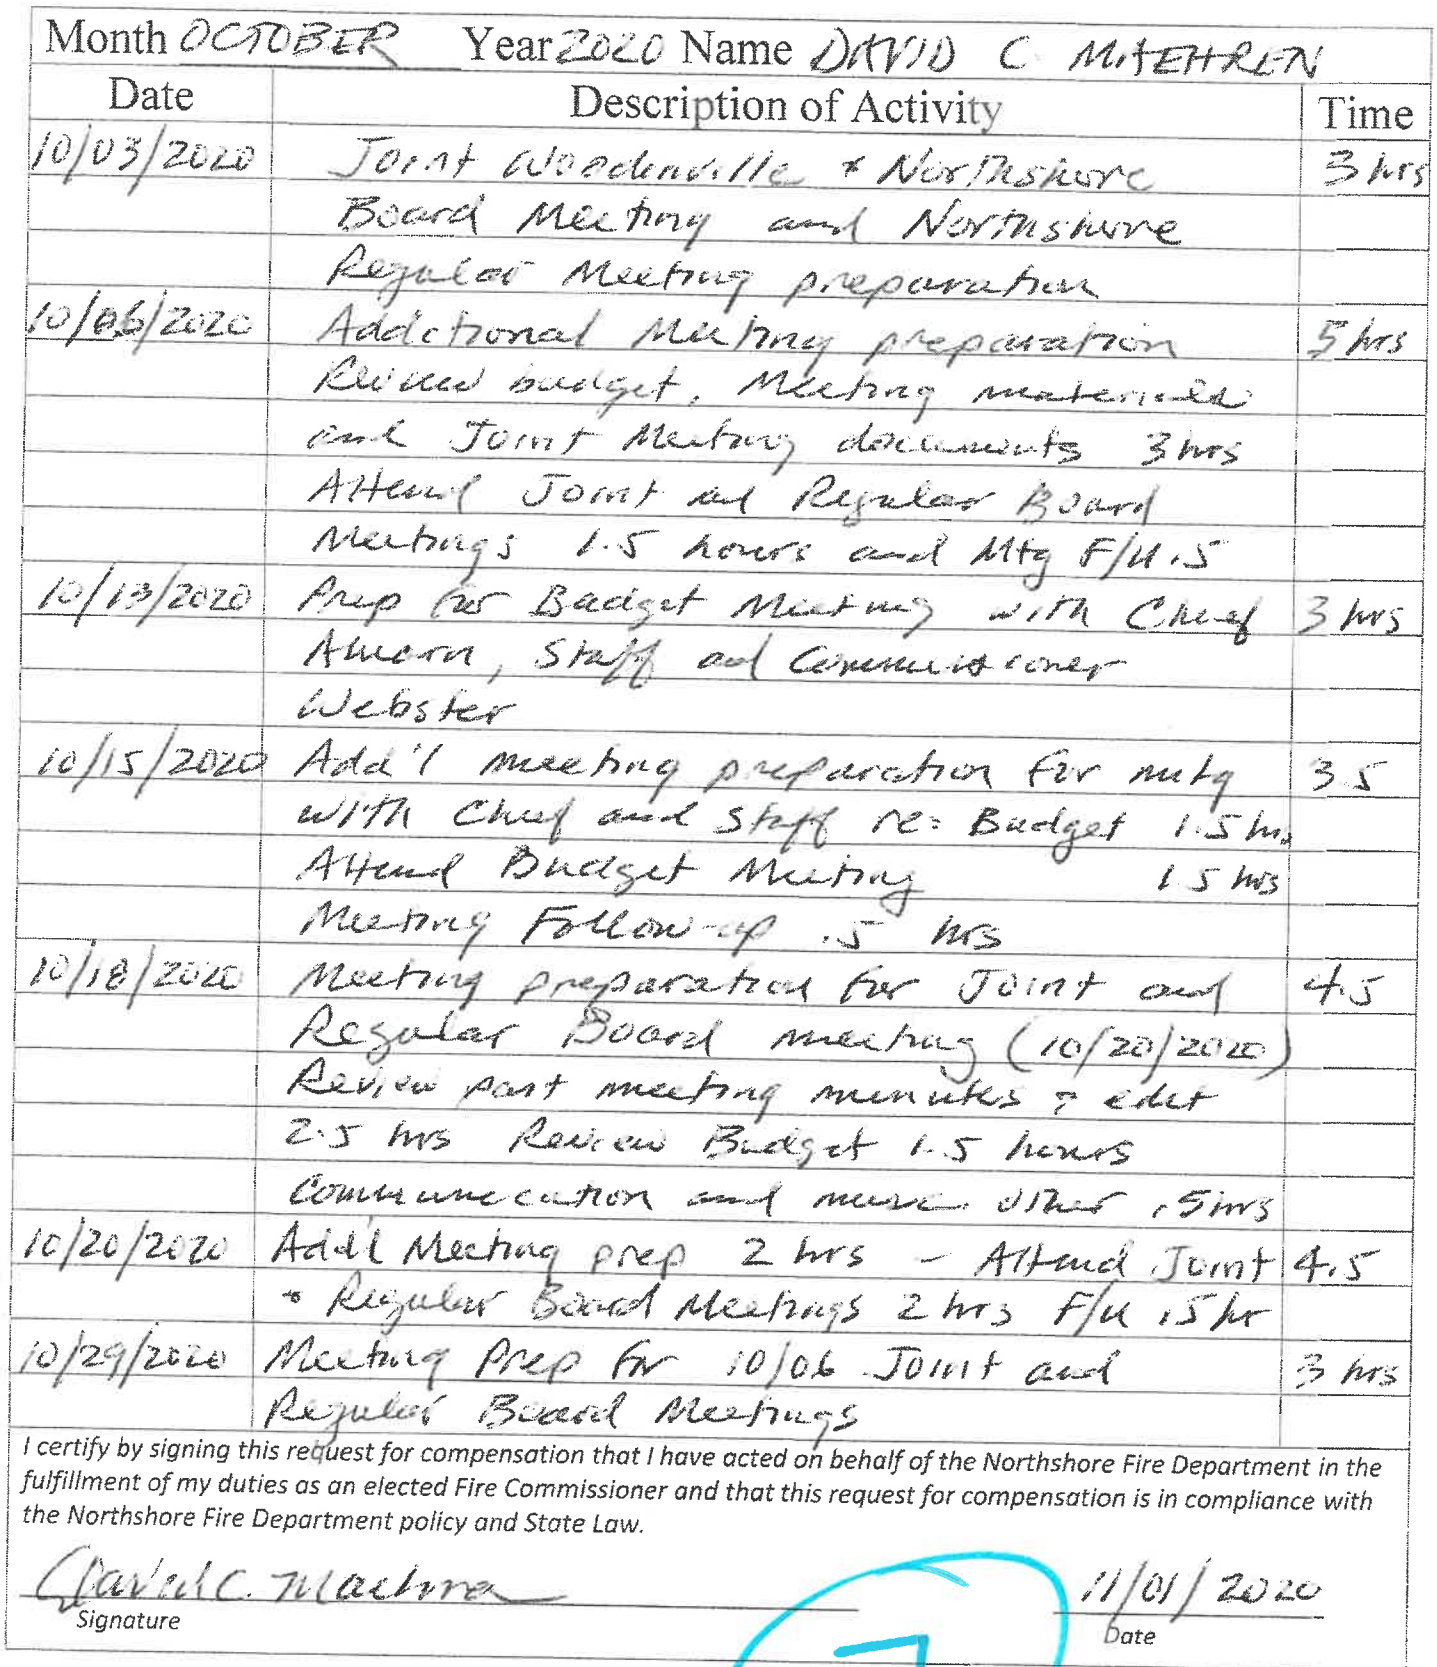 Month OCTOBER Year 2020 Name DAVID C. MAEHREN
Date Description of Activity Time
10/03/2020 Joint Woodinville + Northshore 3 hrs
Board Meeting and Northshore
Regular Meeting preparation
10/06/2020 Additional Meeting preparation 5 hrs
Review budget, Meeting materials
and Joint Meeting documents 3 hrs
Attend Joint and Regular Board
Meetings 1.5 hours and Mtg F/U .5
10/13/2020 Prep for Budget Meeting with Chief 3 hrs
Ahearn, Staff and Commissioner
Webster
10/15/2020 Add'l meeting preparation for mtg 3.5
with Chief and Staff re: Budget 1.5 hrs
Attend Budget Meeting 1.5 hrs
Meeting Follow-up .5 hrs
10/18/2020 Meeting preparation for Joint and 4.5
Regular Board meeting (10/20/2020)
Review past meeting minutes & edit
2.5 hrs Review Budget 1.5 hours
Communication and other .5 hrs
10/20/2020 Add'l Meeting prep 2 hrs - Attend Joint 4.5
+ Regular Board Meetings 2 hrs F/U .5 hr
10/29/2020 Meeting Prep for 10/06 Joint and 3 hrs
Regular Board Meetings
I certify by signing this request for compensation that I have acted on behalf of the Northshore Fire Department in the
fulfillment of my duties as an elected Fire Commissioner and that this request for compensation is in compliance with
the Northshore Fire Department policy and State Law.
David C. Maehren 11/01/2020
Signature Date